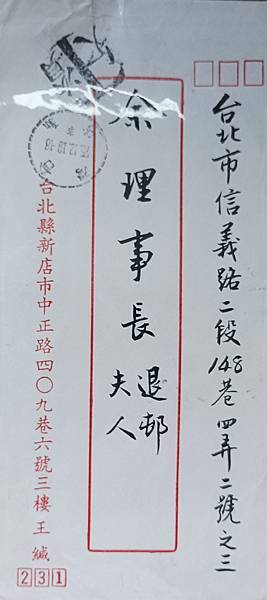 台北市信義路二段148巷四弄二號之三
余理事長退邨
夫人
台北縣新店市中正路四〇九巷六號三樓 王 緘
231